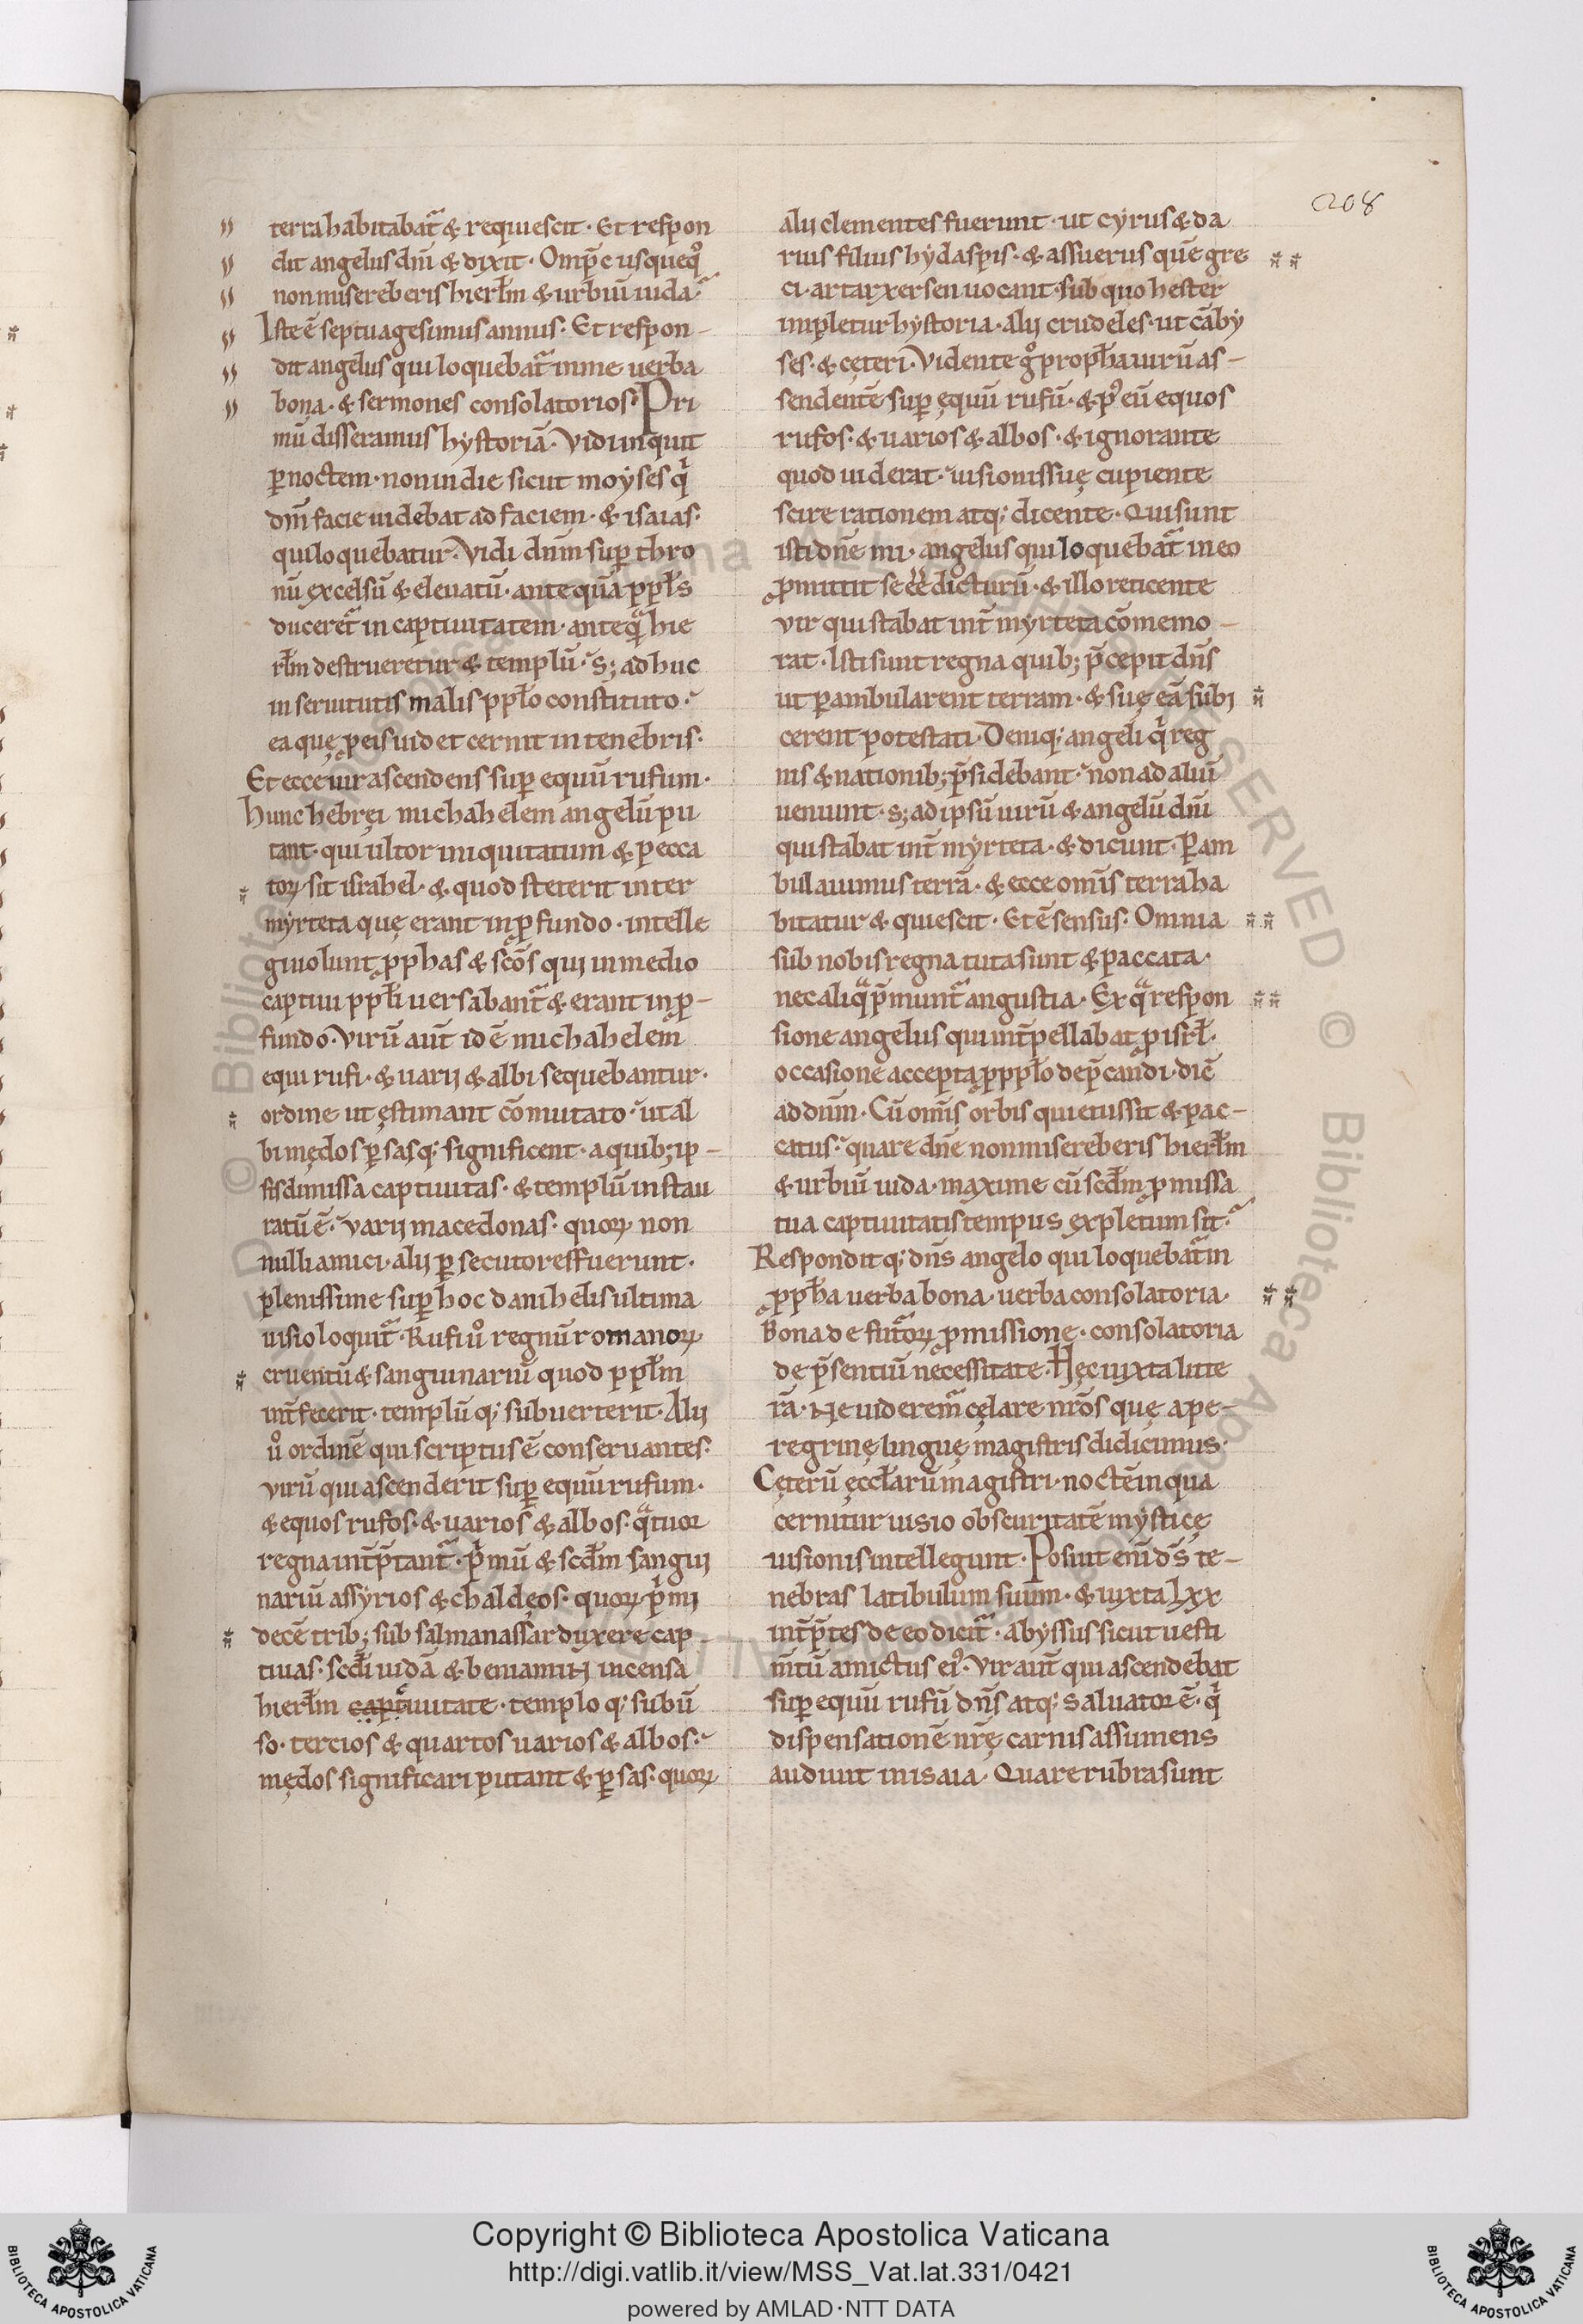 208
terra habitabat᷑ & requiescit · Et respon
dit angelus dn̄i & dixit · Omp̄c usqueq͛o
non misereberis hierƚm & urbiū iuda ·
Iste ē septuagesimus annus · Et respon-
dit angelus qui loquebat᷑ in me uerba
bona · & sermones consolatorios · Pri
mū disseramus hystoriā · Vidi inquit
ꝑ noctem · non in die sicut moyses qͥ
dn̄m facie uidebat ad faciem · & isaias ·
qui loquebatur · Vidi dn̄m suꝑ thro
nū excelsū & eleuatū · ante quā ppƚs
duceret᷑ in captiuitatem · anteqͣ hie
rƚm destrueretur & templū · s; adhuc
in seruitutis malis ppƚo constituto ·
ea quę ꝓ eis uidet cernit in tenebris ·
Et ecce uir ascendens suꝑ equū rufum ·
Hunc hebręi michahelem angelū pu
tant · qui ultor iniquitatum & pecca
toꝝ sit israhel · & quod steterit inter
myrteta quę erant in ꝓfundo · intelle
gi uolunt ꝓphas & sc̄os qui in medio
captiui ppƚi uersabant᷑ & erant in ꝓ-
fundo · Virū aut̄ idē michahelem
equi rufi · & uarij & albi sequebantur ·
ordine ut ęstimant cōmutato · ut al
bi mędos ꝑsasq; significent · a quib; ip-
sis dimissa captiuitas · & templū instau
ratū ē · Varij macedonas · quoꝝ non
nulli amici · alij ꝑsecutores fuerunt ·
plenissime suꝑ hoc danihelis ultima
uisio loquit᷑ · Rufi uͦ regnū romanoꝝ
cruentū & sanguinariū quod ppƚm
int̄fecerit · templū q; subuerterit · Alij
uͦ ordinē qui scriptus ē conseruantes ·
virū qui ascenderit suꝑ equū rufum ·
& equos rufos · & uarios & albos · qͣtuor
regna int̄p̄tant᷑ · pͥmū & scd̄m sangui
nariū assyrios & chaldęos · quoꝝ pͥmi
decē trib; sub salmanassar duxere cap-
tiuas · scd̄i iudā & beniamin incensa
hierƚm captiuitate · templo q; subū
so · tercios & quartos uarios & albos ·
mędos significari putant & ꝑsas · quoꝝ
alij clementes fuerunt · ut cyrus & da
rius filius hydaspis · & assuerus quē gre
ci · artarxersen uocant · sub quo hester
impletur hystoria · alij crudeles · ut cāby
ses · & cęteri · Vidente gͦ propƚha uirū as-
sendentē suꝑ equū rufū · & pꝰ eū equos
rufos · & uarios & albos · & ignorante
quod uiderat · uisionis suę cupiente
scire rationem atq; dicente · Qui sunt
isti dn̄e mi · angelus qui loquebat᷑ in eo
ꝓmittit se ee dicturū · & illo reticente
vir qui stabat int̄ myrteta cōmemo-
rat · Isti sunt regna quib; p̄cepit dn̄s
ut ꝑambularent terram · & suę eā subi
cerent potestati · Deniq; angeli qͥ reg
nis & nationib; p̄sidebant · non ad aliū
ueniunt · s; ad ipsū uirū & angelū dn̄i
qui stabat int̄ myrteta · & dicunt · Ꝑam
bulauimus terrā · & ecce om̄is terra ha
bitatur & quiescit · Et ē sensus · Omnia
sub nobis regna tuta sunt & paccata ·
nec aliqͣ p̄munt᷑ angustia · Ex qͣ respon
sione angelus qui int̄pellabat ꝓ isrƚ ·
occasione accepta ꝓ ppƚo dep̄candi · dic̄
ad dn̄m · Cū om̄is orbis quietus sit & pac-
catus · quare dn̄e non misereberis hierƚm
& urbiū iuda · maxime cū scd̄m ꝓmissa
tua captiuitatis tempus expletum sit ·
Respondit q; dn̄s angelo qui loquebat᷑ in
ꝓpƚha uerba bona · uerba consolatoria ·
Bona de fut᷑oꝝ ꝓmissione · consolatoria
de p̄sentiū necessitate · Hęc iuxta litte
rā · Ne uiderem᷑ cęlare nr̄os quę a pe-
regrinę linguę magistris didicimus ·
Cęterū ęccƚarū magistri · noctē in qua
cernitur uisio obscuritatē mysticę
uisionis intellegunt · Posuit enī ds̄ te-
nebras latibulum suum · & iuxta lxx
int̄p̄tes de eo dicit᷑ · Abyssus sicut uesti
m̄tū amictus eiꝰ · Vir aut̄ qui ascendebat
suꝑ equū rufū dn̄s atq; saluator ē · qͥ
dispensationē nr̄ę carnis assumens
audiuit in isaia · Quare rubra sunt
© Biblioteca Apostolica Vaticana ALL RIGHTS RESERVED
Copyright © Biblioteca Apostolica Vaticana
http://digi.vatlib.it/view/MSS_Vat.lat.331/0421
powered by AMLAD·NTT DATA
BIBLIOTECA APOSTOLICA VATICANA
BIBLIOTECA APOSTOLICA VATICANA